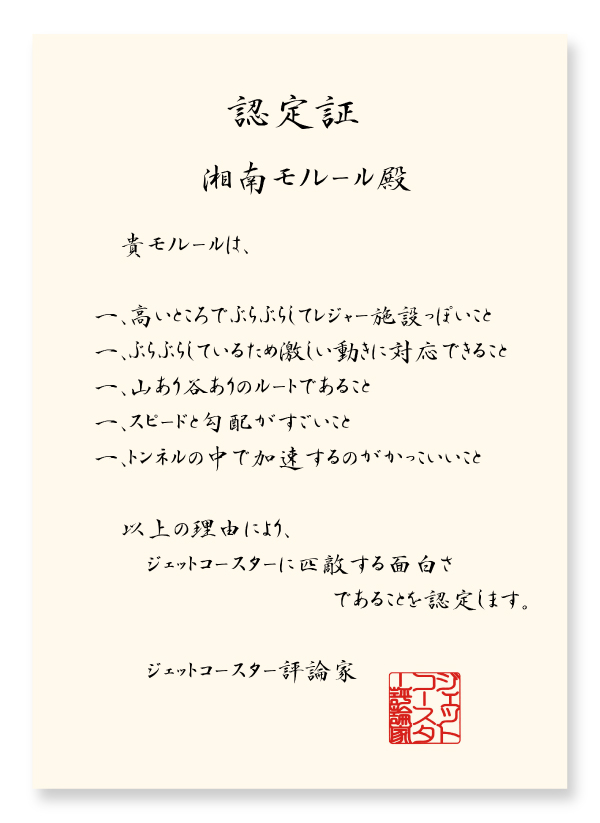 認定証
湘南モノレール殿
貴モノレールは、
一、高いところでぶらぶらしてレジャー施設っぽいこと
一、ぶらぶらしているため激しい動きに対応できること
一、山あり谷ありのルートであること
一、スピードと勾配がすごいこと
一、トンネルの中で加速するのがかっこいいこと
以上の理由により、
ジェットコースターに匹敵する面白さ
であることを認定します。
ジェットコースター評論家
ジェット
コースタ
ー評論家